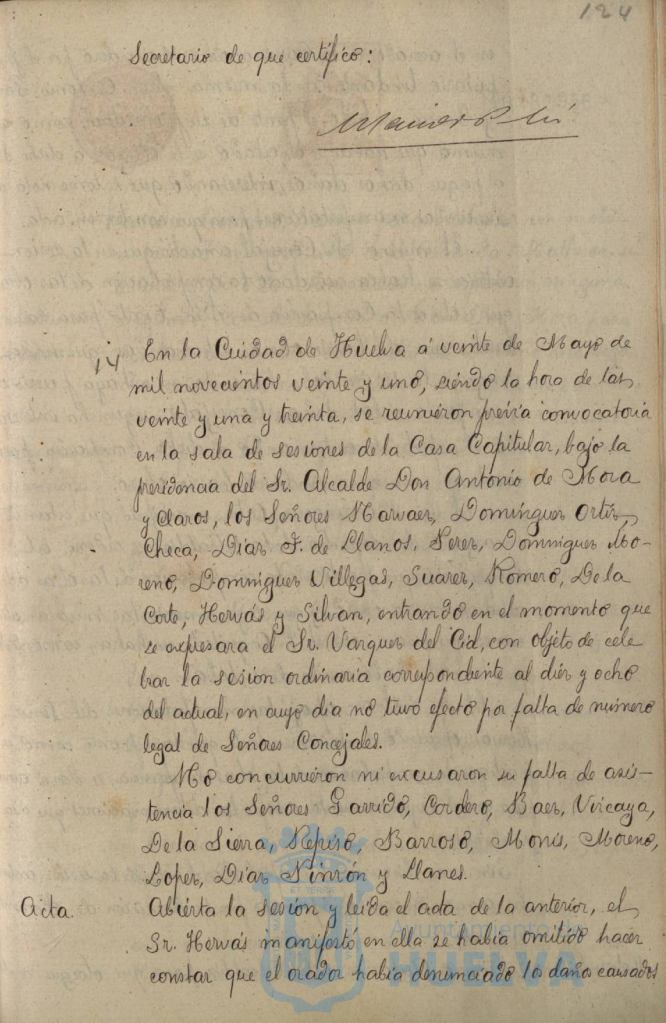 124
Secretario de que certifico:
14
En la Cuidad de Huelva á veinte de Mayo de
mil novecientos veinte y uno, siendo la hora de las
veinte y una y treinta, se reunieron previa convocatoria
en la sala de sesiones de la Casa Capitular, bajo la
presidencia del Sr. Alcalde Don Antonio de Mora
y Claros, los Señores Narvaez, Dominguez Ortiz,
Checa, Diaz F. de Llanos, Perez, Dominguez Mo-
reno, Dominguez Villegas, Suarez, Romero, De la
Corte, Hervás y Silvan, entrando en el momento que
se expresara el Sr. Vazquez del Cid, con objeto de cele
brar la sesión ordinaria correspondiente al diez y ocho
del actual, en cuyo dia no tuvo efecto por falta de número
legal de Señores Concejales.
No concurrieron ni excusaron su falta de asis-
tencia los Señores Garrido, Cordero, Baez, Vizcaya,
De la Sierra, Repiso, Barroso, Monis, Moreno,
Lopez, Diaz Pinzón y Llanes.
Acta.
Abierta la sesión y leida el acta de la anterior, el
Sr. Hervás manifestó en ella se habia omitido hacer
constar que el orador habia denunciado los daños causados
Ayuntamiento
HUELVA